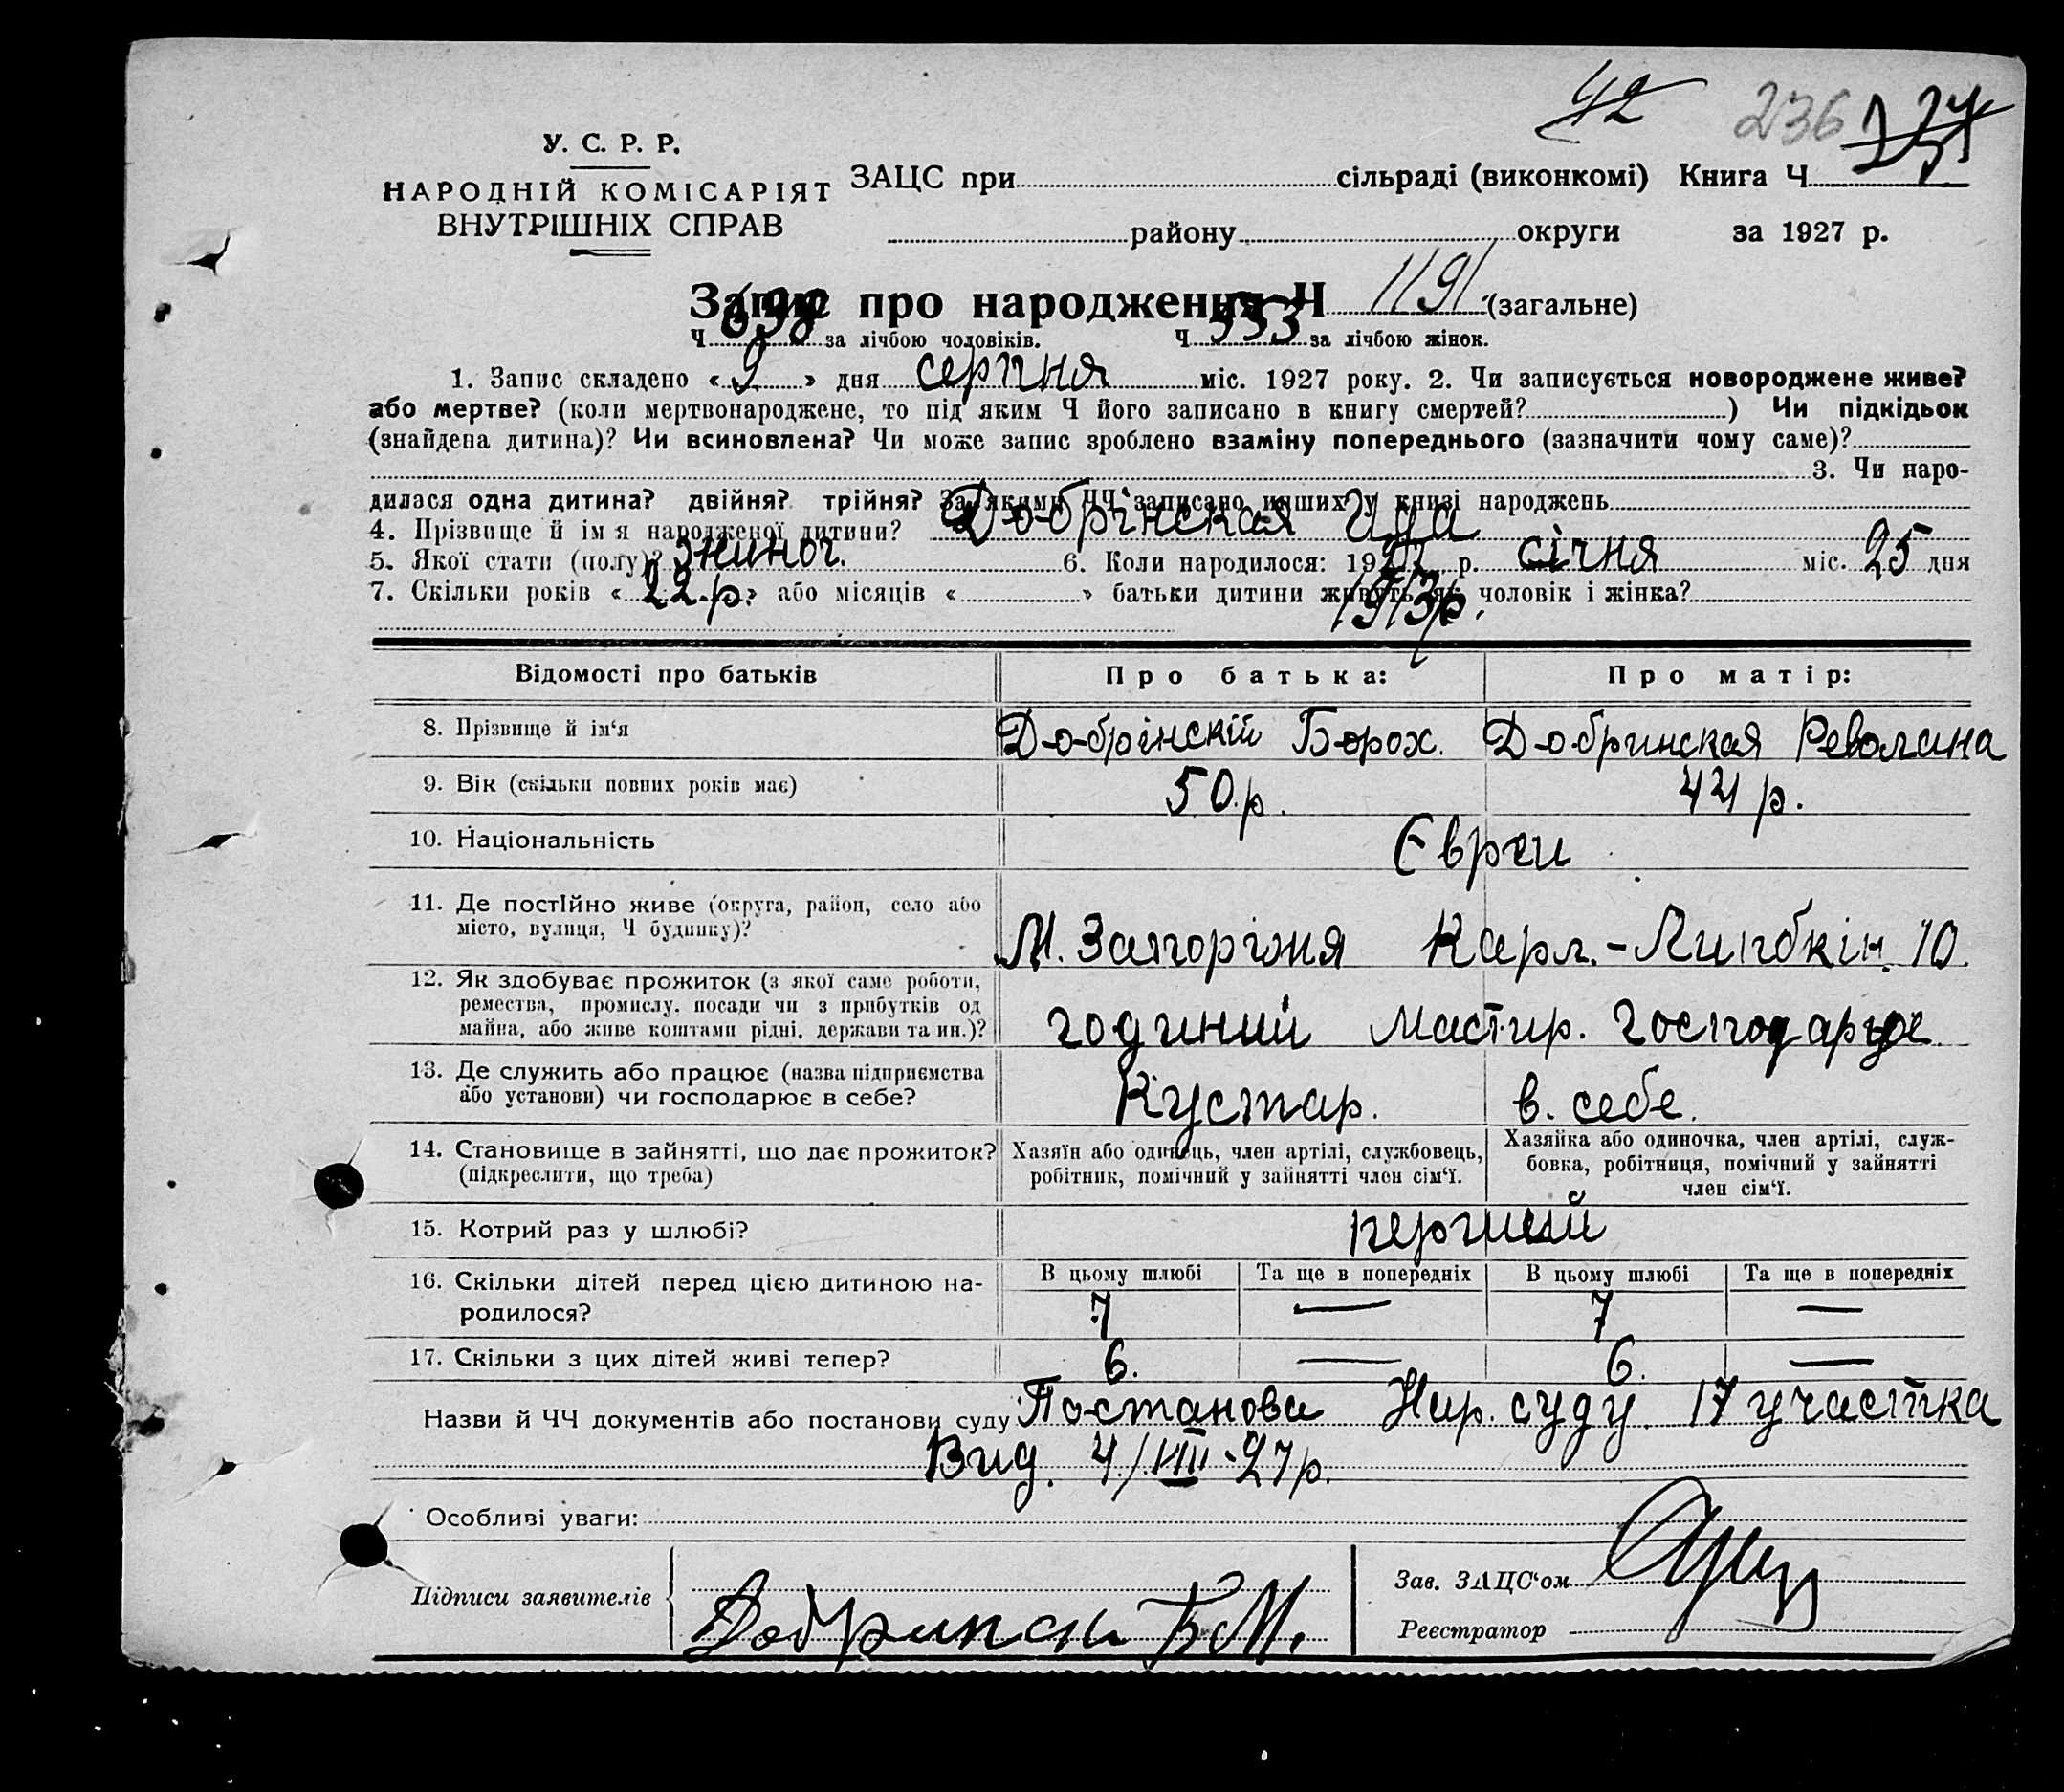 42 236
У. С. Р. Р.
НАРОДНІЙ КОМІСАРІЯТ
ВНУТРІШНІХ СПРАВ
ЗАЦС при сільраді (виконкомі) Книга Ч
району округи за 1927 р.
Запис про народження Ч 1191 (загальне)
Ч 638 за лічбою чоловіків. Ч 553 за лічбою жінок.
1. Запис складено « 9 » дня серпня міс. 1927 року. 2. Чи записується новороджене живе?
або мертве? (коли мертвонароджене, то під яким Ч його записано в книгу смертей? ) Чи підкідьок
(знайдена дитина)? Чи всиновлена? Чи може запис зроблено взаміну попереднього (зазначити чому саме)?
3. Чи наро-
дилася одна дитина? двійня? трійня? За якими ЧЧ записано инших у книзі народжень
4. Прізвище й ім'я народженої дитини? Добрінская Ида
5. Якої стати (полу)? жиноч. 6. Коли народилося: 19 р. січня міс. 25 дня
7. Скільки років « 22 р. » або місяців « » батьки дитини живуть як чоловік і жінка?
1913р.
Відомості про батьків Про батька: Про матір:
8. Прізвище й ім'я Добрінскій Борох. Добринская
9. Вік (скільки повних років має) 50 р. 44 р.
10. Національність Євреи
11. Де постійно живе (округа, район, село або
місто, вулиця, Ч будинку)? М. Запоріжя Карл.-Липбкін. 10.
12. Як здобуває прожиток (з якої саме роботи,
ремества, промислу, посади чи з прибутків од
майна, або живе коштами рідні, держави та ин.)? годиний Мастир. господарює
13. Де служить або працює (назва підприємства
або установи) чи господарює в себе? Кустар. в. себе.
14. Становище в зайнятті, що дає прожиток?
(підкреслити, що треба)
Хазяїн або одинець, член артілі, службовець,
робітник, помічний у зайнятті член сім'ї.
Хазяйка або одиночка, член артілі, служ-
бовка, робітниця, помічний у зайнятті
член сім'ї.
15. Котрий раз у шлюбі? перший
16. Скільки дітей перед цією дитиною на-
родилося?
В цьому шлюбі Та ще в попередніх В цьому шлюбі Та ще в попередніх
7 — 7 —
17. Скільки з цих дітей живі тепер? 6. — 6. —
Назви й ЧЧ документів або постанови суду Постанова Нар. суду 17 участка
Вид. 4/VIII-27р.
Особливі уваги:
Підписи заявителів Б М.
Зав. ЗАЦС'ом
Реєстратор